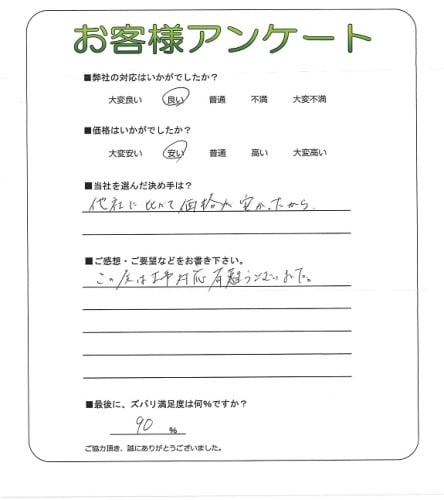 お客様アンケート
■弊社の対応はいかがでしたか?
大変良い 良い 普通 不満 大変不満
■価格はいかがでしたか?
大変安い 安い 普通 高い 大変高い
■当社を選んだ決め手は?
他社に比べて価格が安かったから
■ご感想・ご要望などをお書き下さい。
この度は工事対応有難うございました。
■最後に、ズバリ満足度は何%ですか?
90 %
ご協力頂き、誠にありがとうございました。